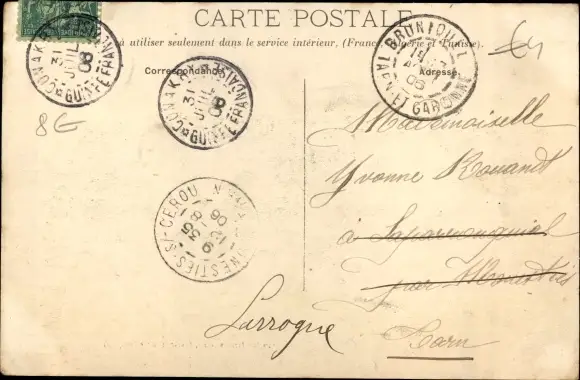 CARTE POSTALE
à utiliser seulement dans le service intérieur, (France, Algérie et Tunisie).
Correspondance
Adresse
CONAKRY
31 JUIL 08
GUINÉE FRANÇAISE
CONAKRY
31 JUIL 08
GUINÉE FRANÇAISE
BRUNIQUEL
08
TARN-ET-GARONNE
8€
€4
MONESTIÈS-S/-CEROU
TARN
Mademoiselle
Yvonne
à Laparrouquial
par Monestiés
Larroque
Tarn